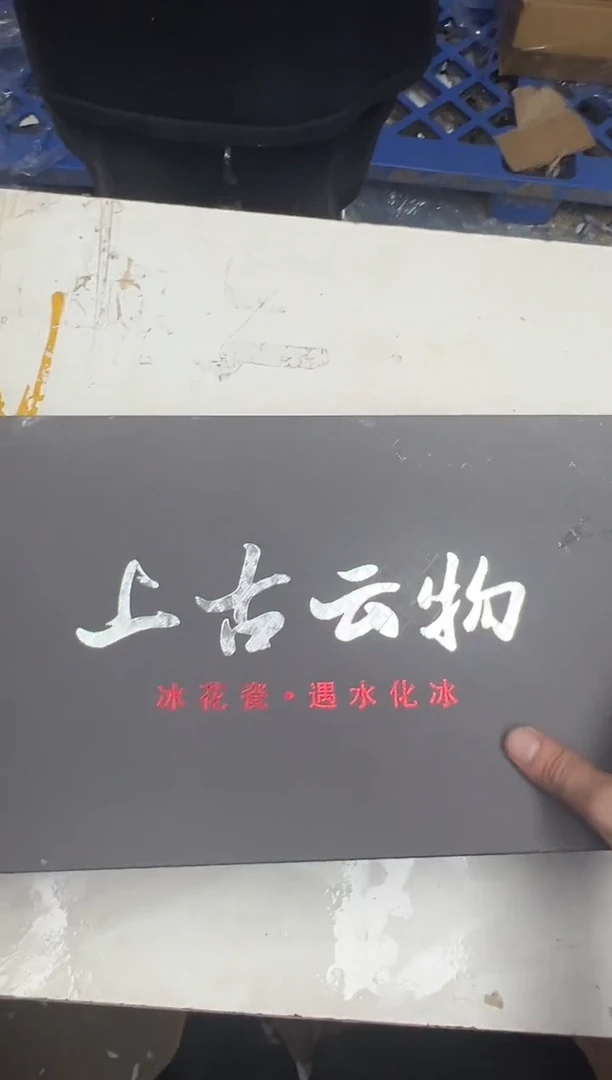 上古云物
冰花瓷·遇水化冰